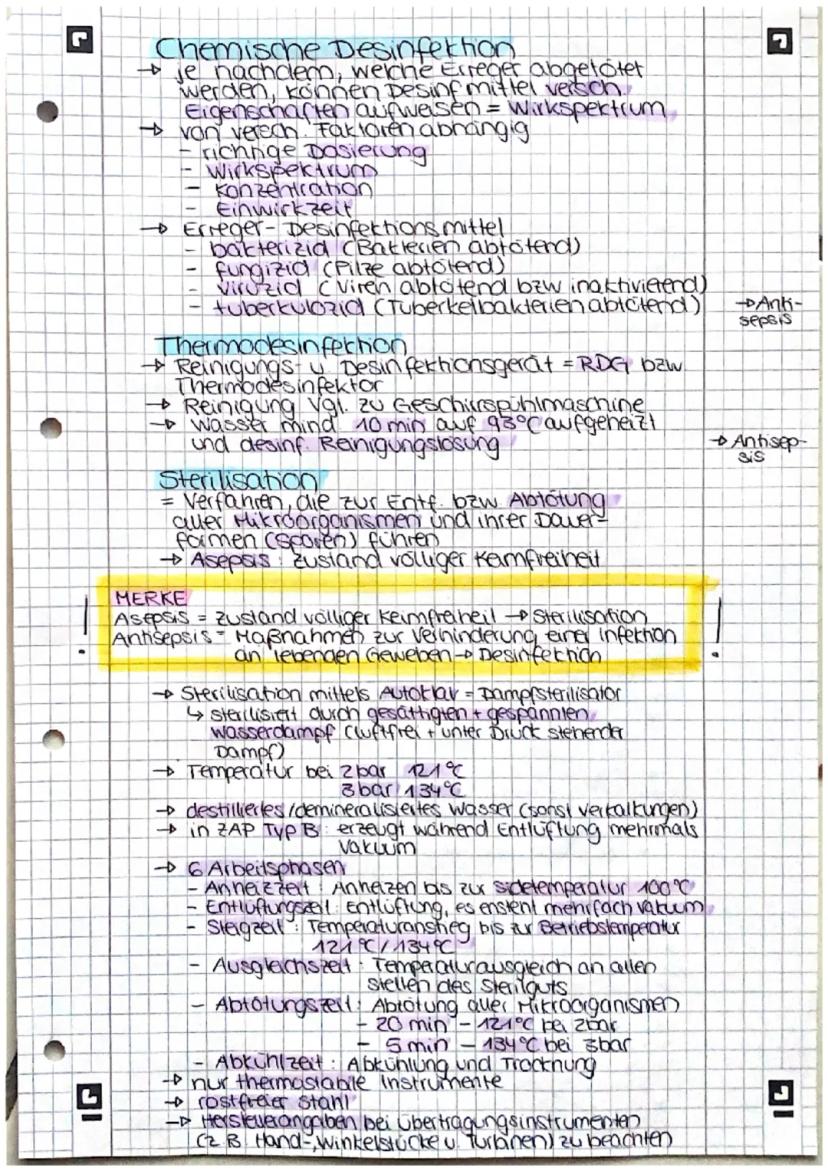 Chemische Desinfektion
→ je nachdem, welche Erreger abgetötet
werden, können Desinfmittel versch.
Eigenschaften aufweisen = Wirkspektrum
→ von versch. Faktoren abhängig
- richtige Dosierung
- Wirkspektrum
- Konzentration
- Einwirkzeit
→ Erreger- Desinfektionsmittel
- bakterizid (Bakterien abtötend)
- fungizid (Pilze abtötend)
- viruzid (Viren abtötend bzw inaktivierend)
- tuberkulozid (Tuberkelbakterien abtötend)
→ Anti-
sepsis
Thermodesinfektion
→ Reinigungs- u. Desinfektionsgerät = RDG bzw.
Thermodesinfektor
→ Reinigung vgl. zu Geschirrspühlmaschine
→ Wasser mind. 10 min auf 93°C aufgeheizt
und desinf. Reinigungslösung
→ Antisep-
sis
Sterilisation
= Verfahren, die zur Entf. bzw Abtötung
aller Mikroorganismen und ihrer Dauer-
formen (Sporen) führen
→ Asepsis: Zustand völliger Keimfreiheit
MERKE
Asepsis = Zustand völliger Keimfreiheit → Sterilisation
Antisepsis = Maßnahmen zur Verhinderung einer Infektion
an lebenden Geweben → Desinfektion
! !
→ Sterilisation mittels Autoklav = Dampfsterilisator
↳ sterilisiert durch gesättigten + gespannten
Wasserdampf (luftfrei + unter Druck stehender
Dampf)
→ Temperatur bei 2bar 121°C
3bar 134°C
→ destilliertes/demineralisiertes Wasser (sonst verkalkungen)
→ in ZAP Typ B: erzeugt während Entlüftung mehrmals
Vakuum
→ 6 Arbeitsphasen
- Anheizzeit: Anheizen bis zur Sidetemperatur 100°C
- Entlüftungszeit: Entlüftung, es ensteht mehrfach Vakuum
- Steigzeit: Temperaturanstieg bis zur Betriebstemperatur
121°C/134°C
- Ausgleichszeit: Temperaturausgleich an allen
stellen des Sterilguts
- Abtötungszeit: Abtötung aller Mikroorganismen
- 20 min - 121°C bei 2bar
- 5 min - 134°C bei 3bar
- Abkühlzeit: Abkühlung und Trocknung
→ nur thermostabile Instrumente
→ rostfreier Stahl
→ Herstellerangaben bei Übertragungsinstrumenten
(z.B. Hand-, Winkelstücke u. Turbinen) zu beachten